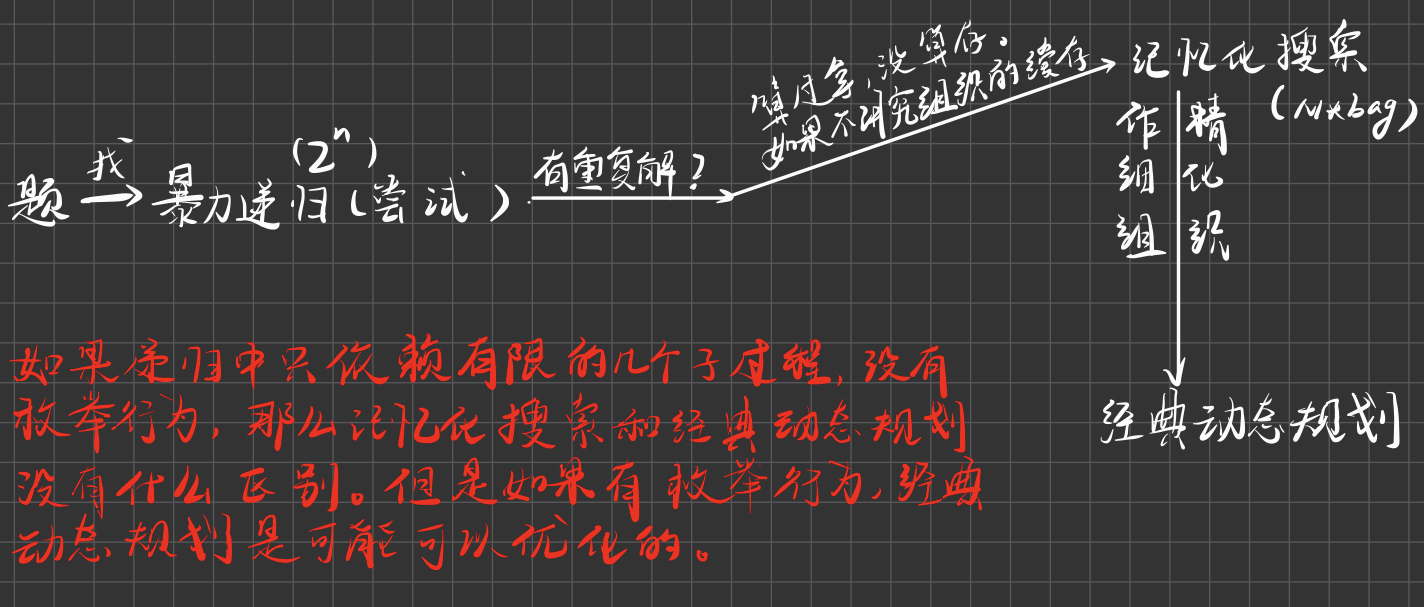 题 找 暴力递归(尝试) (2ⁿ) 有重复解?
算过拿,没算存。
如果不讲究组织的缓存
记忆化搜索
(N*bag)
作 精
细 化
组 织
经典动态规划
如果递归中只依赖有限的几个子过程,没有
枚举行为,那么记忆化搜索和经典动态规划
没有什么区别。但是如果有枚举行为,经典
动态规划是可能可以优化的。